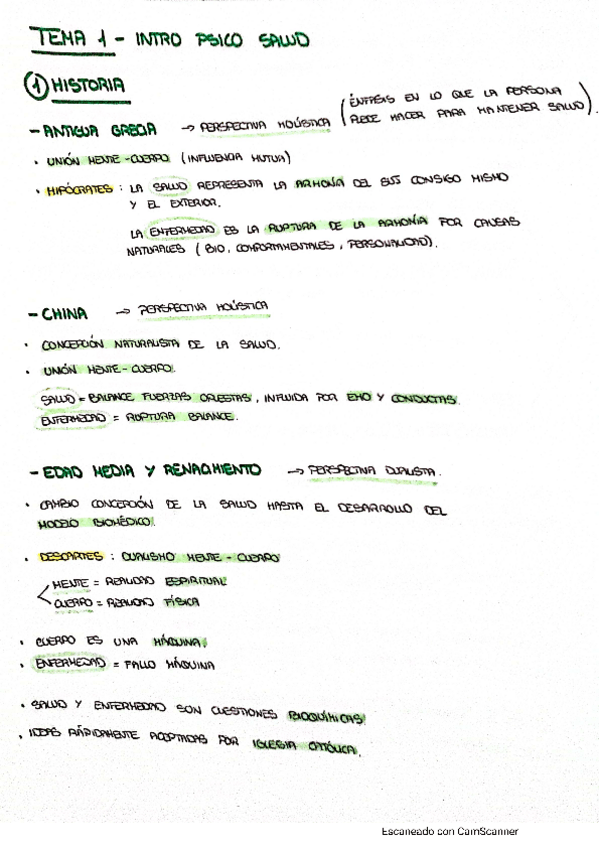 TEMA 1 - INTRO PSICO SALUD
1 HISTORIA
- ANTIGUA GRECIA → PERSPECTIVA HOLÍSTICA (ÉNFASIS EN LO QUE LA PERSONA
DEBE HACER PARA MANTENER SALUD).
• UNIÓN MENTE-CUERPO (INFLUENCIA MUTUA)
• HIPÓCRATES : LA SALUD REPRESENTA LA ARMONÍA DEL SUJ CONSIGO MISMO
Y EL EXTERIOR.
LA ENFERMEDAD ES LA RUPTURA DE LA ARMONÍA POR CAUSAS
NATURALES (BIO, COMPORTAMENTALES, PERSONALIDAD).
- CHINA → PERSPECTIVA HOLÍSTICA
• CONCEPCIÓN NATURALISTA DE LA SALUD.
• UNIÓN MENTE-CUERPO.
SALUD = BALANCE FUERZAS OPUESTAS, INFLUIDA POR EMO Y CONDUCTAS.
ENFERMEDAD = RUPTURA BALANCE.
- EDAD MEDIA Y RENACIMIENTO → PERSPECTIVA DUALISTA.
• CAMBIO CONCEPCIÓN DE LA SALUD HASTA EL DESARROLLO DEL
MODELO BIOMÉDICO.
• DESCARTES : DUALISMO MENTE - CUERPO
MENTE = REALIDAD ESPIRITUAL
CUERPO = REALIDAD FÍSICA
• CUERPO ES UNA MÁQUINA.
• ENFERMEDAD = FALLO MÁQUINA
• SALUD Y ENFERMEDAD SON CUESTIONES BIOQUÍMICAS.
• IDEAS RÁPIDAMENTE ACEPTADAS POR IGLESIA CATÓLICA.
Escaneado con CamScanner